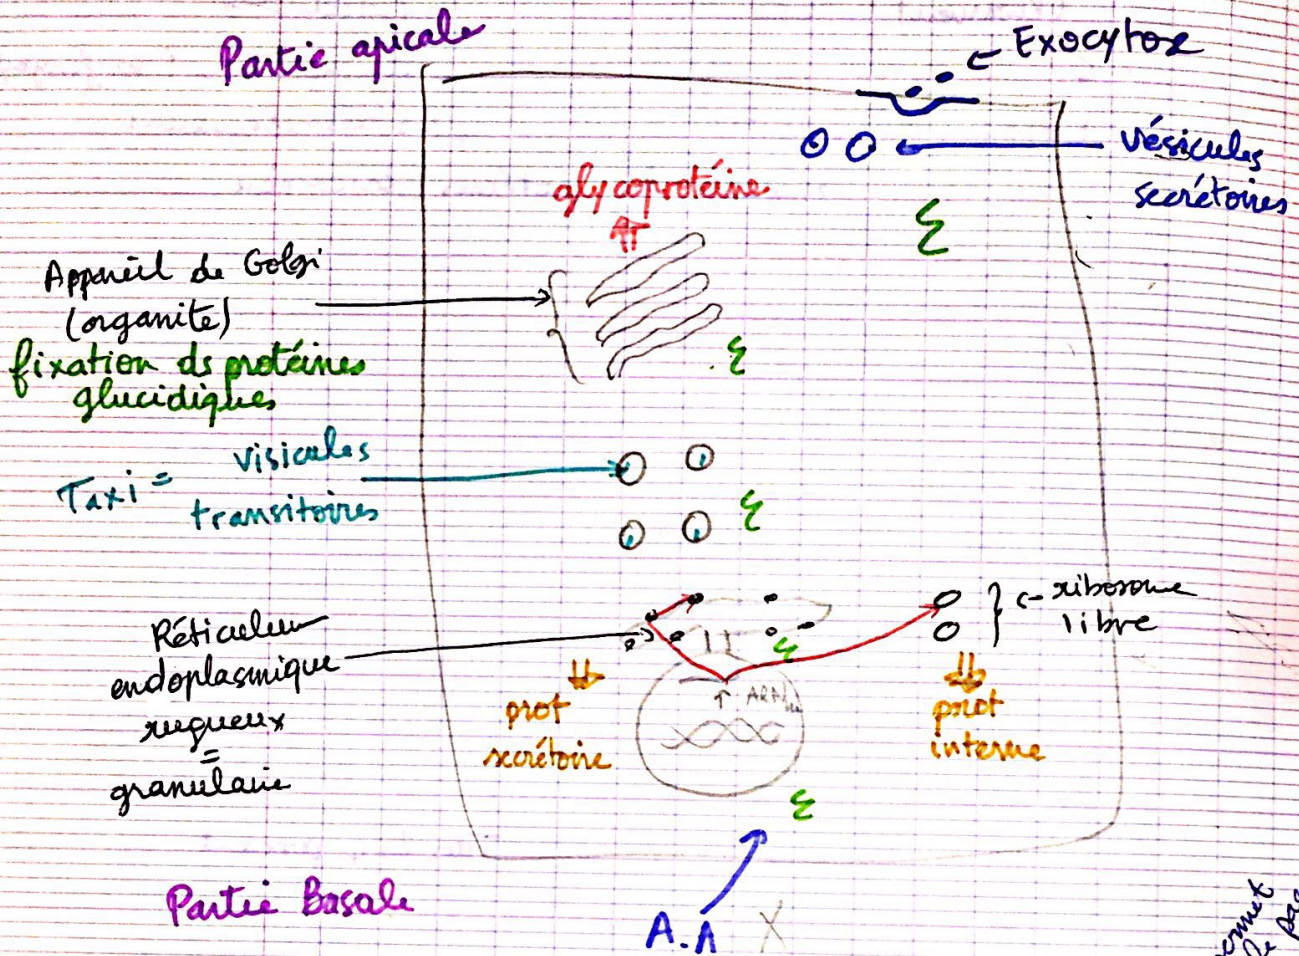 Partie apicale
Exocytose
vésicules
secrétoires
glycoprotéine
Appareil de Golgi
(organite)
fixation ds protéines
glucidiques
Taxi = visicules
transitoires
ribosome
libre
Réticulum
endoplasmique
rugueux
=
granulaire
ARNm
prot
secrétoire
prot
interne
Partie Basale
A.A